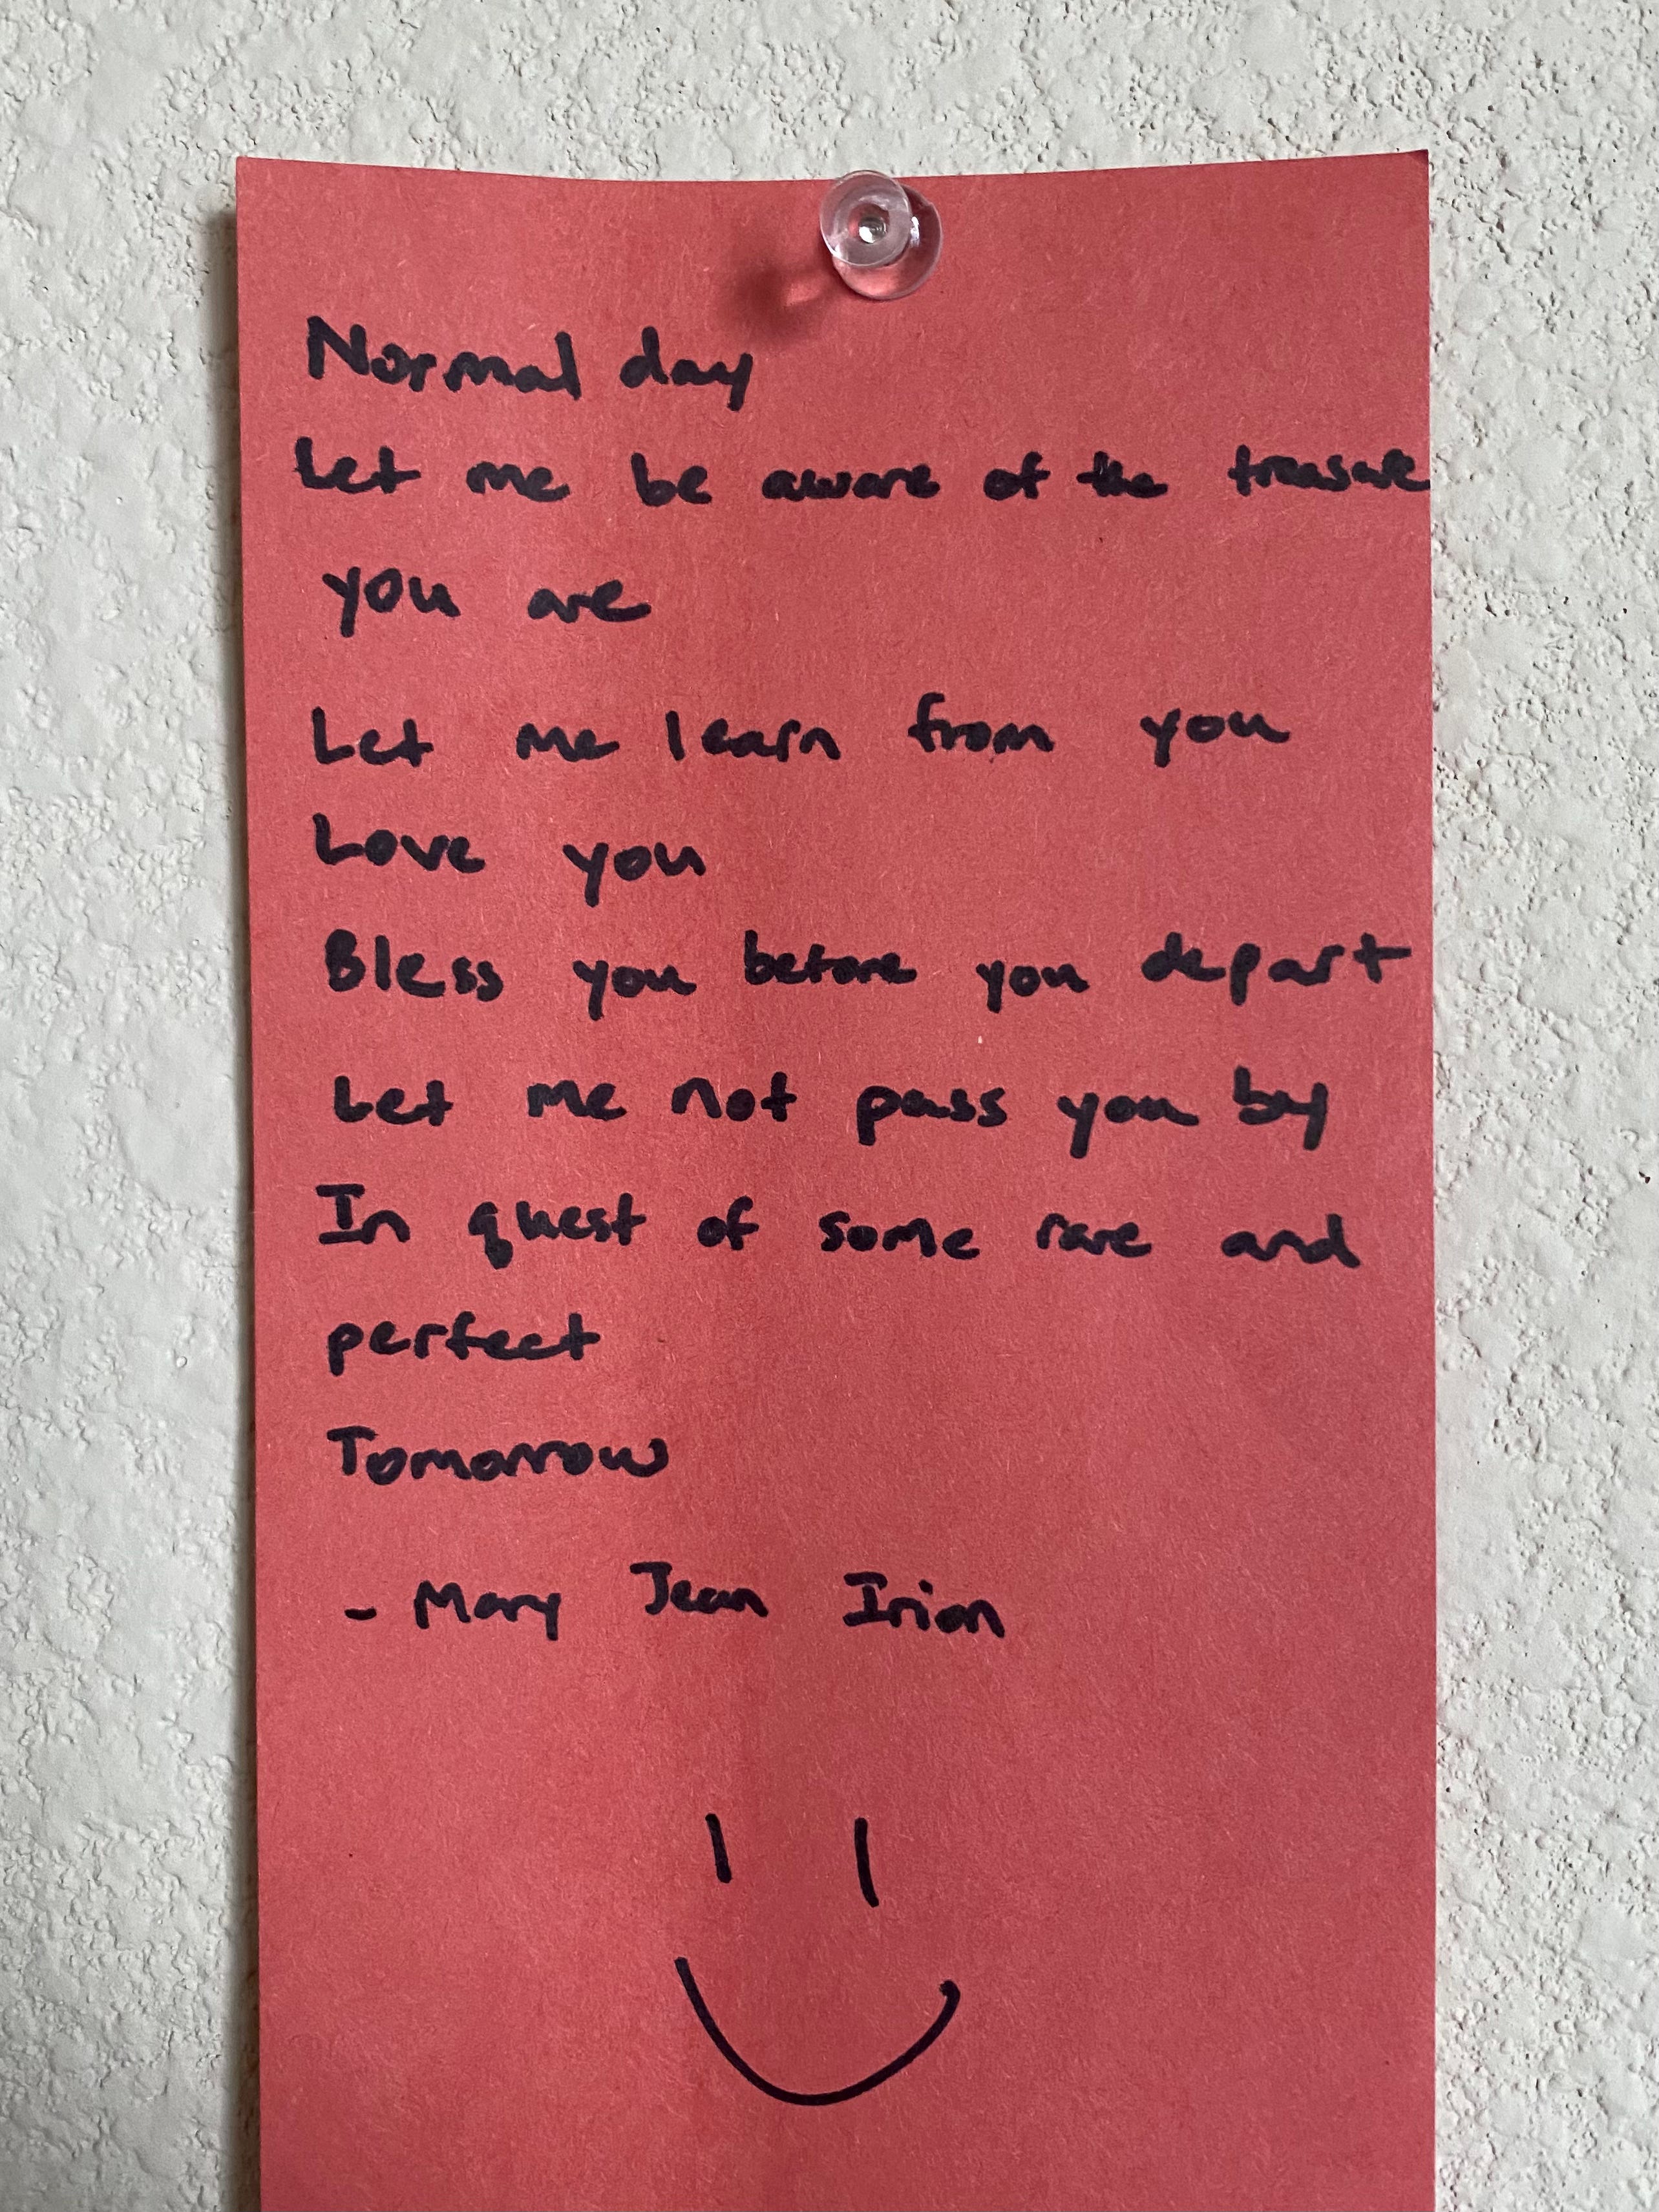 Normal day
Let me be aware of the treasure
you are
Let me learn from you
Love you
Bless you before you depart
Let me not pass you by
In quest of some rare and
perfect
Tomorrow
- Mary Jean Irion